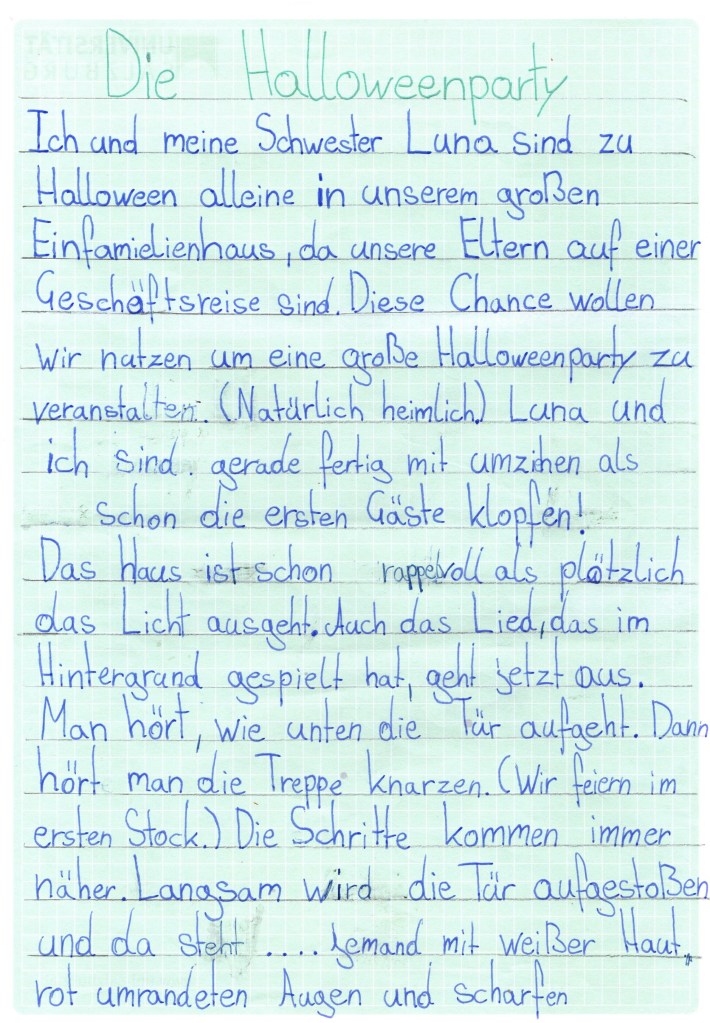 Die Halloweenparty
Ich und meine Schwester Luna sind zu
Halloween alleine in unserem großen
Einfamielienhaus, da unsere Eltern auf einer
Geschäftsreise sind. Diese Chance wollen
wir nutzen um eine große Halloweenparty zu
veranstalten. (Natürlich heimlich.) Luna und
ich sind gerade fertig mit umziehen als
schon die ersten Gäste klopfen!
Das Haus ist schon rappelvoll als plötzlich
das Licht ausgeht. Auch das Lied, das im
Hintergrund gespielt hat, geht jetzt aus.
Man hört, wie unten die Tür aufgeht. Dann
hört man die Treppe knarzen. (Wir feiern im
ersten Stock.) Die Schritte kommen immer
näher. Langsam wird die Tür aufgestoßen
und da steht .... Jemand mit weißer Haut,
rot umrandeten Augen und scharfen